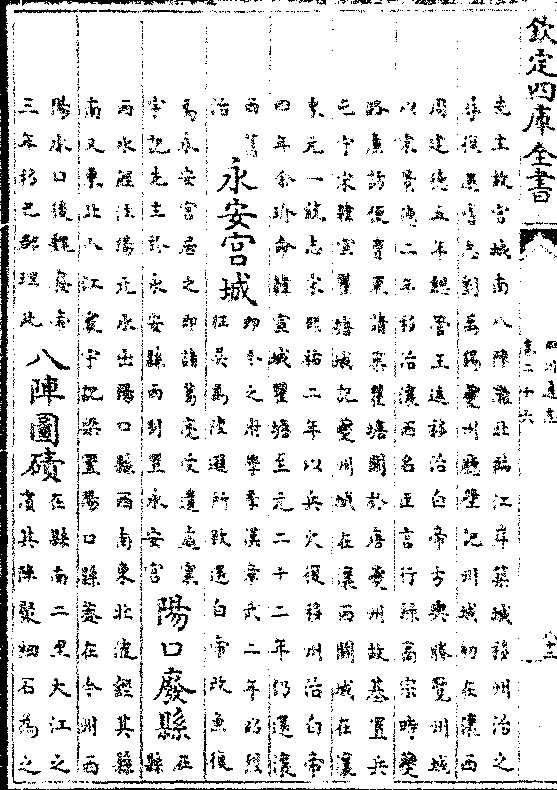 欽定四庫全書
四川通志
卷二十六
先主故宫城南八陣磧北臨江岸築城移州治之
劉禹錫夔州廳壁記州城初在瀼西
周建德五年總管王述移治白帝方輿勝覽州城
以宋景德二年移治瀼西名臣言行錄高宗時夔
路廉訪使請築瞿塘關於唐夔州故基置兵
屯守宋韓宣瞿塘城記夔州城在瀼西關城在瀼
東元一統志宋祐二年以兵火復移州治白帝
四年余玠命韓宣城瞿塘至元二十二年仍還瀼
西舊
治
永安宫城
即今之府學宫漢章武二年昭烈
征吳爲陸遜所敗還白帝改魚復
爲永安宫居之即諸葛亮受遺處寰
宇記先主於永安縣西別置永安宫
陽口廢縣
在
縣
西水經注陽元水出陽口縣西南東北流經其縣
南又東北入江寰宇記梁置陽口縣蓋在今州西
陽水口後魏廢帝
三年移巴郡理此
八陣圖磧
在縣南二里大江之
濱其陣聚細石為之